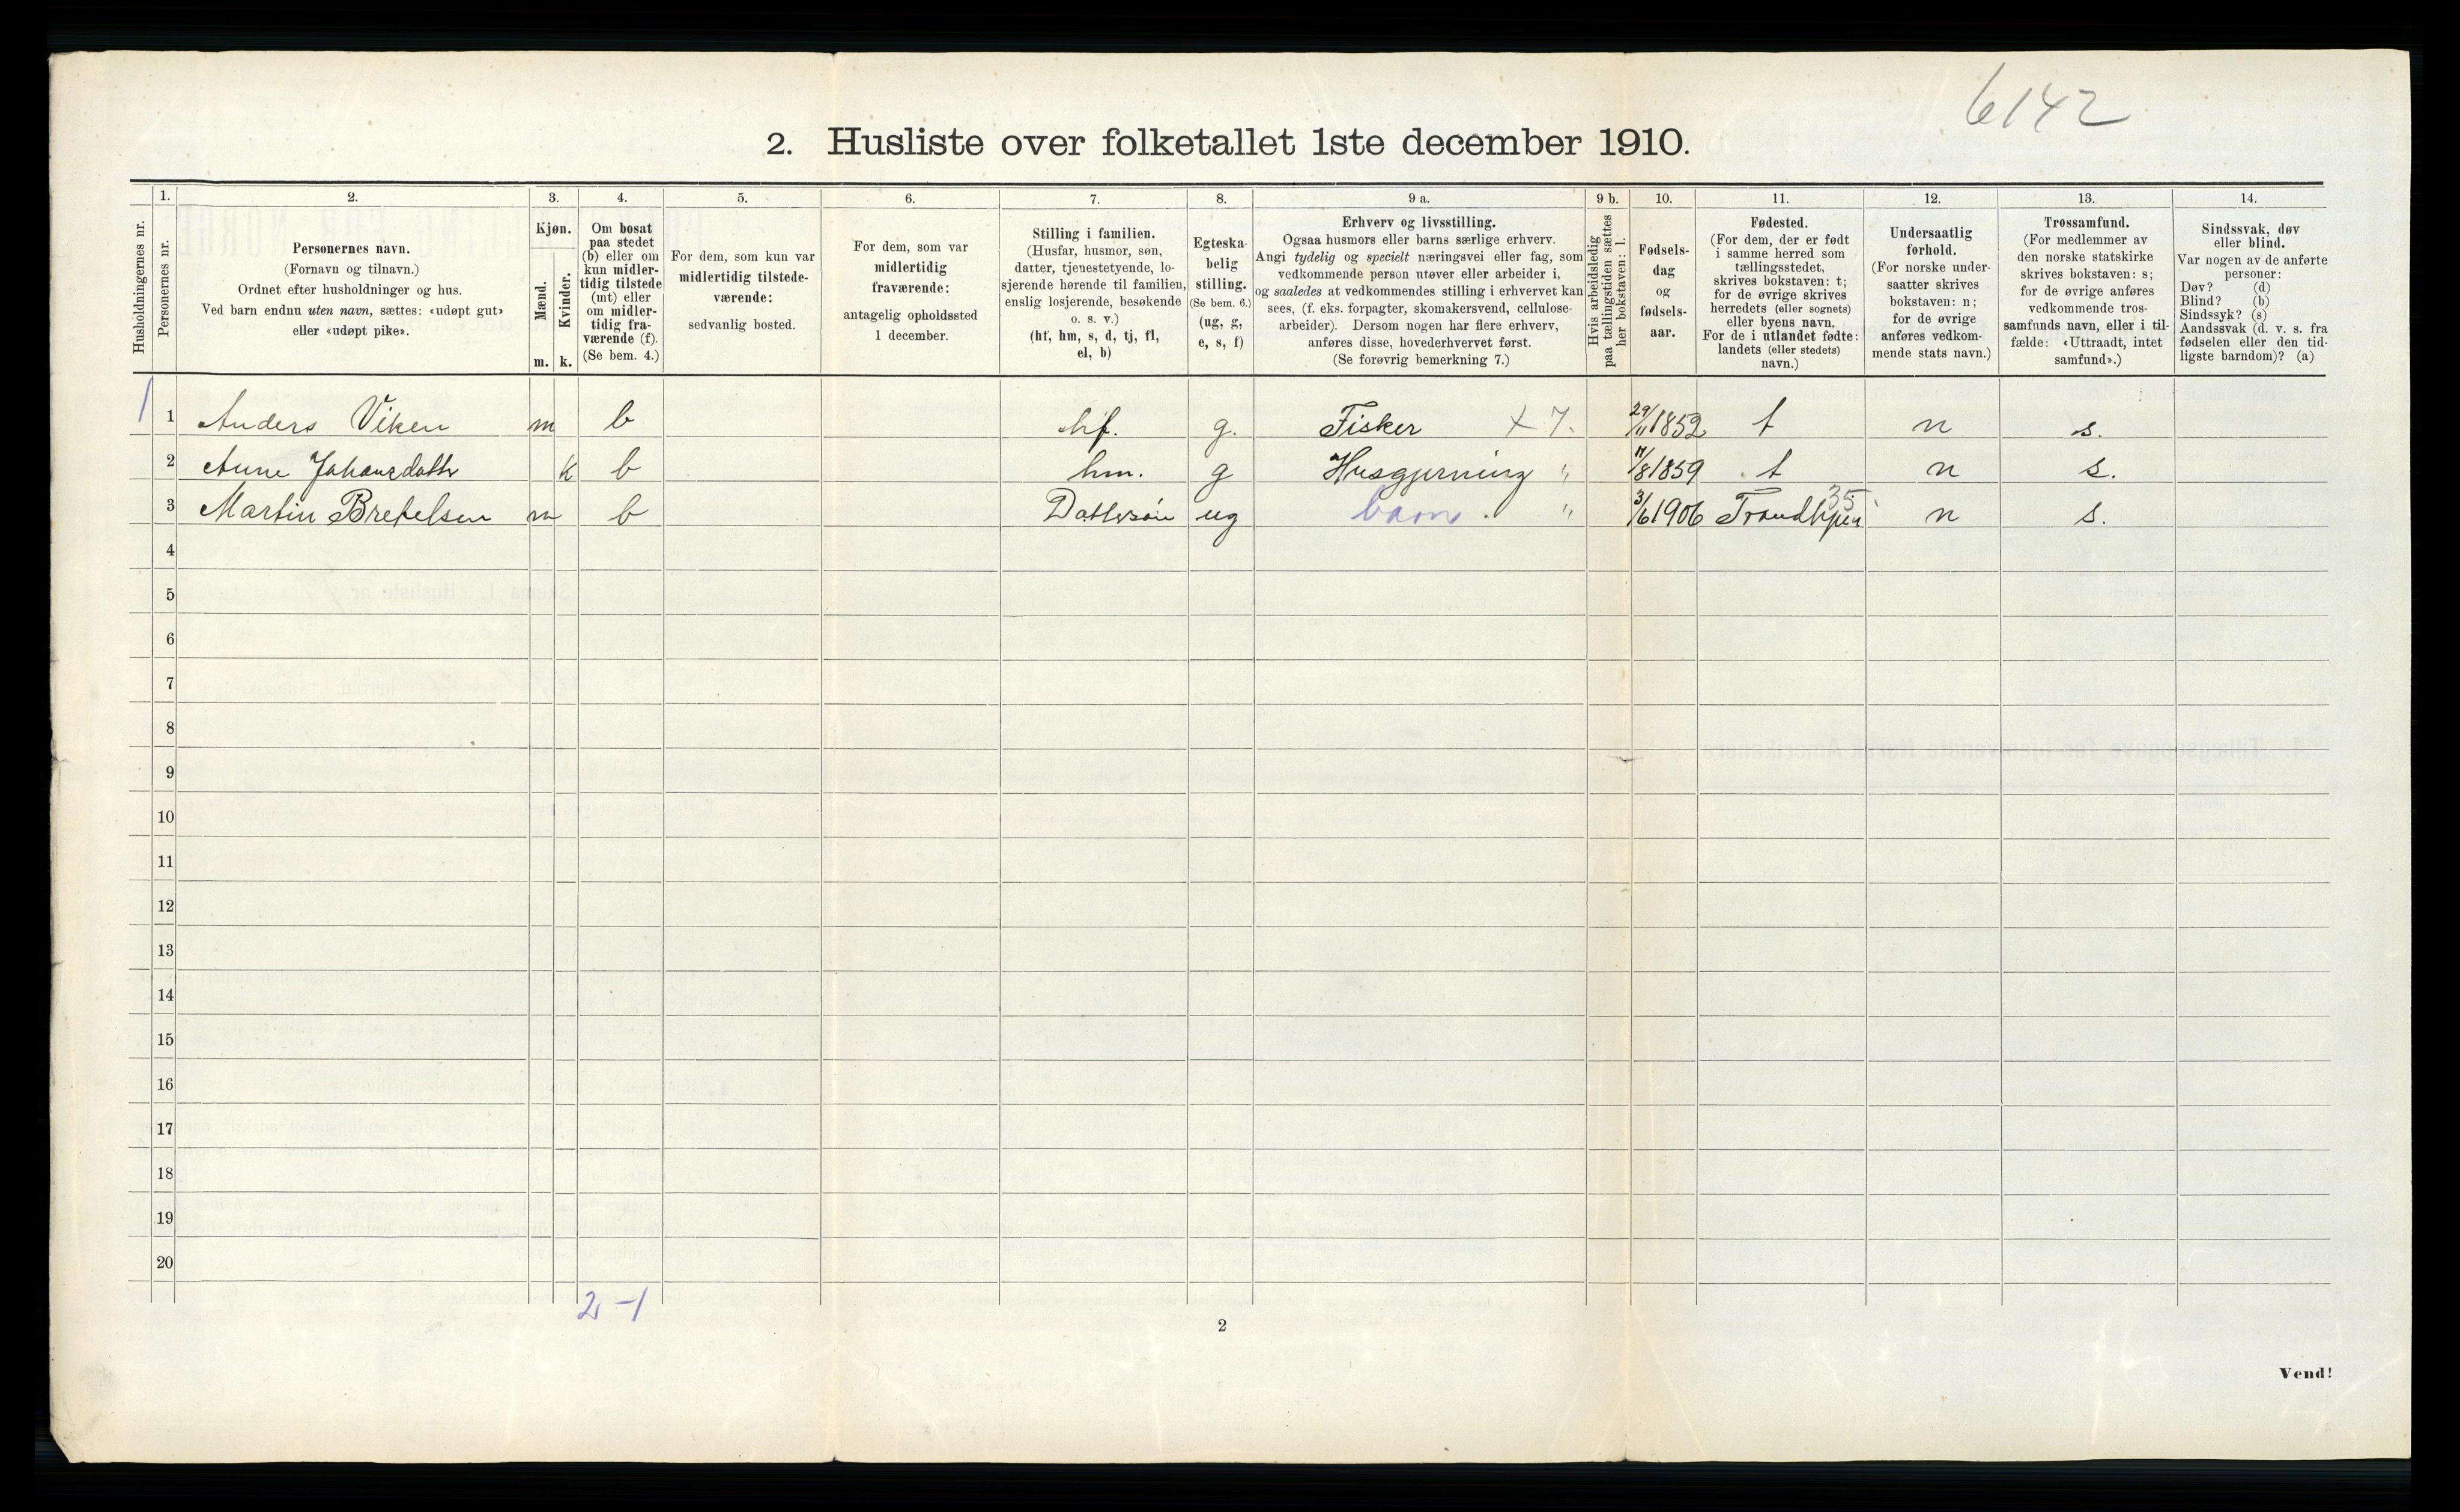 6142
2. Husliste over folketallet 1ste december 1910.
1. 2. 3. 4. 5. 6. 7. 8. 9 a. 9 b. 10. 11. 12. 13. 14.
Husholdningernes nr.
Personernes nr.
Personernes navn.
(Fornavn og tilnavn.)
Ordnet efter husholdninger og hus.
Ved barn endnu uten navn, sættes: «udøpt gut»
eller «udøpt pike».
Kjøn.
Mænd.
Kvinder.
m. k.
Om bosat
paa stedet
(b) eller om
kun midler-
tidig tilstede
(mt) eller
om midler-
tidig fra-
værende (f).
(Se bem. 4.)
For dem, som kun var
midlertidig tilstede-
værende:
sedvanlig bosted.
For dem, som var
midlertidig
fraværende:
antagelig opholdssted
1 december.
Stilling i familien.
(Husfar, husmor, søn,
datter, tjenestetyende, lo-
sjerende hørende til familien,
enslig losjerende, besøkende
o. s. v.)
(hf, hm, s, d, tj, fl,
el, b)
Egteska-
belig
stilling.
(Se bem. 6.)
(ug, g,
e, s, f)
Erhverv og livsstilling.
Ogsaa husmors eller barns særlige erhverv.
Angi tydelig og specielt næringsvei eller fag, som
vedkommende person utøver eller arbeider i,
og saaledes at vedkommendes stilling i erhvervet kan
sees, (f. eks. forpagter, skomakersvend, cellulose-
arbeider). Dersom nogen har flere erhverv,
anføres disse, hovederhvervet først.
(Se forøvrig bemerkning 7.)
Hvis arbeidsledig
paa tællingstiden sættes
her bokstaven: l.
Fødsels-
dag
og
fødsels-
aar.
Fødested.
(For dem, der er født
i samme herred som
tællingsstedet,
skrives bokstaven: t;
for de øvrige skrives
herredets (eller sognets)
eller byens navn.
For de i utlandet fødte:
landets (eller stedets)
navn.)
Undersaatlig
forhold.
(For norske under-
saatter skrives
bokstaven: n;
for de øvrige
anføres vedkom-
mende stats navn.)
Trossamfund.
(For medlemmer av
den norske statskirke
skrives bokstaven: s;
for de øvrige anføres
vedkommende tros-
samfunds navn, eller i til-
fælde: «Uttraadt, intet
samfund».)
Sindssvak, døv
eller blind.
Var nogen av de anførte
personer:
Døv? (d)
Blind? (b)
Sindssyk? (s)
Aandssvak (d. v. s. fra
fødselen eller den tid-
ligste barndom)? (a)
1 1 Anders Viken m b hf. g. Fisker X 7. 29/11 1852 t n s.
2 Anne Johansdatter k b hm. g Husgjerning " 11/8 1859 t n s.
3 Martin Bretelsen m b Dattersøn ug barn. " 3/6 1906 Trondhjem 35 n s.
4
5
6
7
8
9
10
11
12
13
14
15
16
17
18
19
20
2-1
2
Vend!